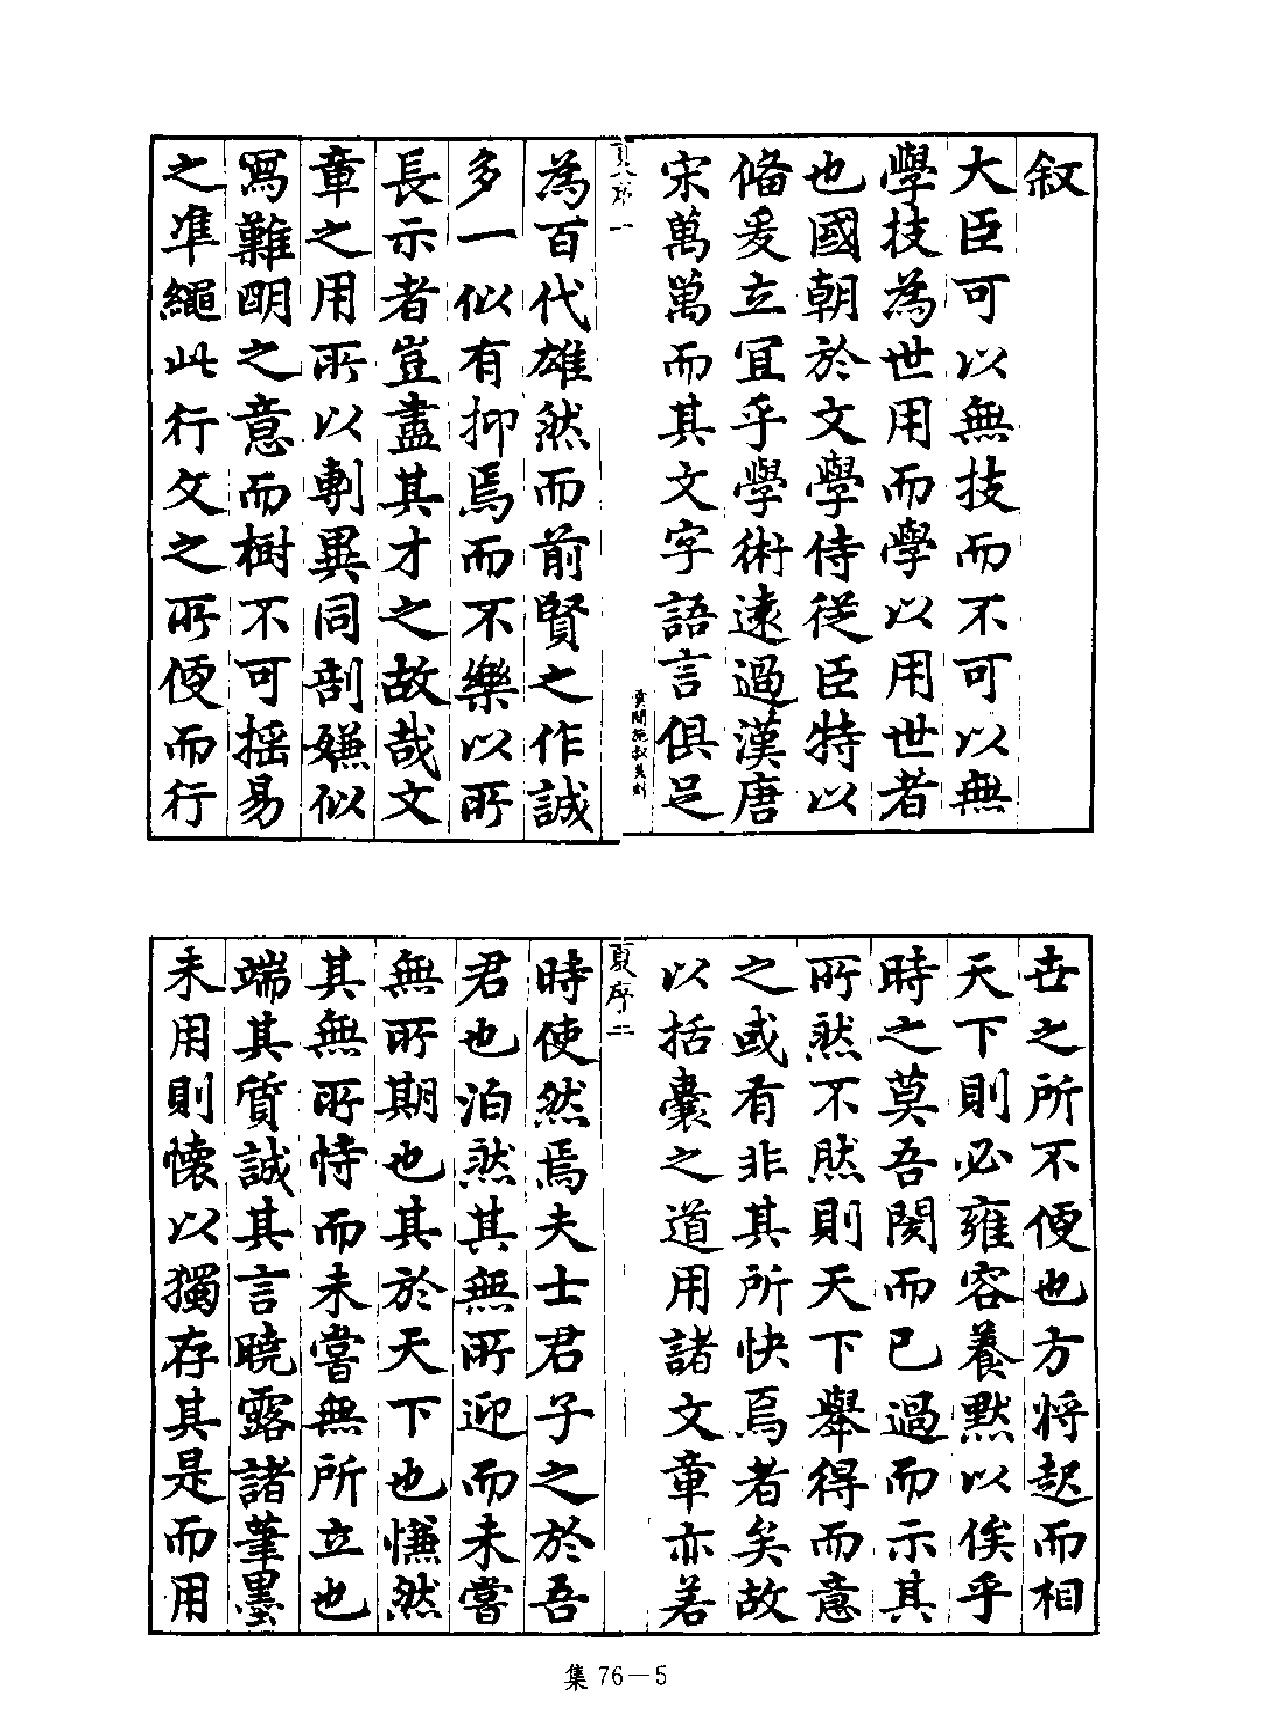 叙
大臣可以無技而不可以無
學技為世用而學以用世者
也國朝於文學侍從臣特以
偹爰立宜乎學術遠過漢唐
宋萬萬而其文字語言俱足
夏序一
為百代雄然而前賢之作誠
多一似有抑焉而不樂以所
長示者豈盡其才之故哉文
章之用所以剸異同剖嫌似
寫難明之意而樹不可揺易
之準繩此行文之所便而行
世之所不便也方將起而相
天下則必雍容養默以俟乎
時之莫吾閡而已過而示其
所然不然則天下舉得而意
之或有非其所快焉者矣故
以括囊之道用諸文章亦若
夏序二
時使然焉夫士君子之於吾
君也泊然其無所迎而未嘗
無所期也其於天下也慊然
其無所恃而未嘗無所立也
端其質誠其言曉露諸筆墨
未用則懐以獨存其是而用
集 76－5